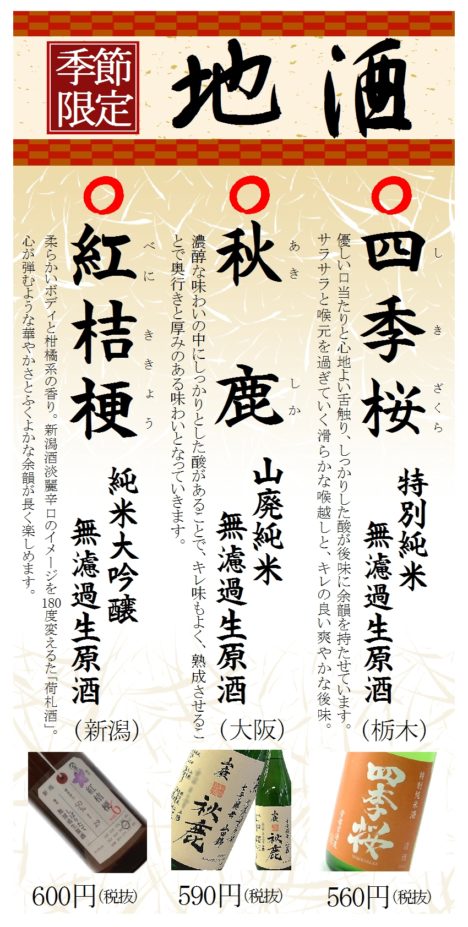 地酒
季節
限定
四季桜
しきざくら
特別純米
無濾過生原酒
優しい口当たりと心地よい舌触り、しっかりした酸が後味に余韻を持たせています。
サラサラと喉元を過ぎていく滑らかな喉越しと、キレの良い爽やかな後味。
(栃木)
四季桜
特別純米酒
560円(税抜)
秋鹿
あきしか
山廃純米
無濾過生原酒
濃醇な味わいの中にしっかりとした酸があることで、キレ味もよく、熟成させるこ
とで奥行きと厚みのある味わいとなっていきます。
(大阪)
山廃
秋鹿
秋鹿
590円(税抜)
紅桔梗
べにききょう
純米大吟醸
無濾過生原酒
柔らかいボディと柑橘系の香り。新潟酒淡麗辛口のイメージを180度変えるた「荷札酒」。
心が弾むような華やかさとふくよかな余韻が長く楽しめます。
(新潟)
紅桔梗
600円(税抜)